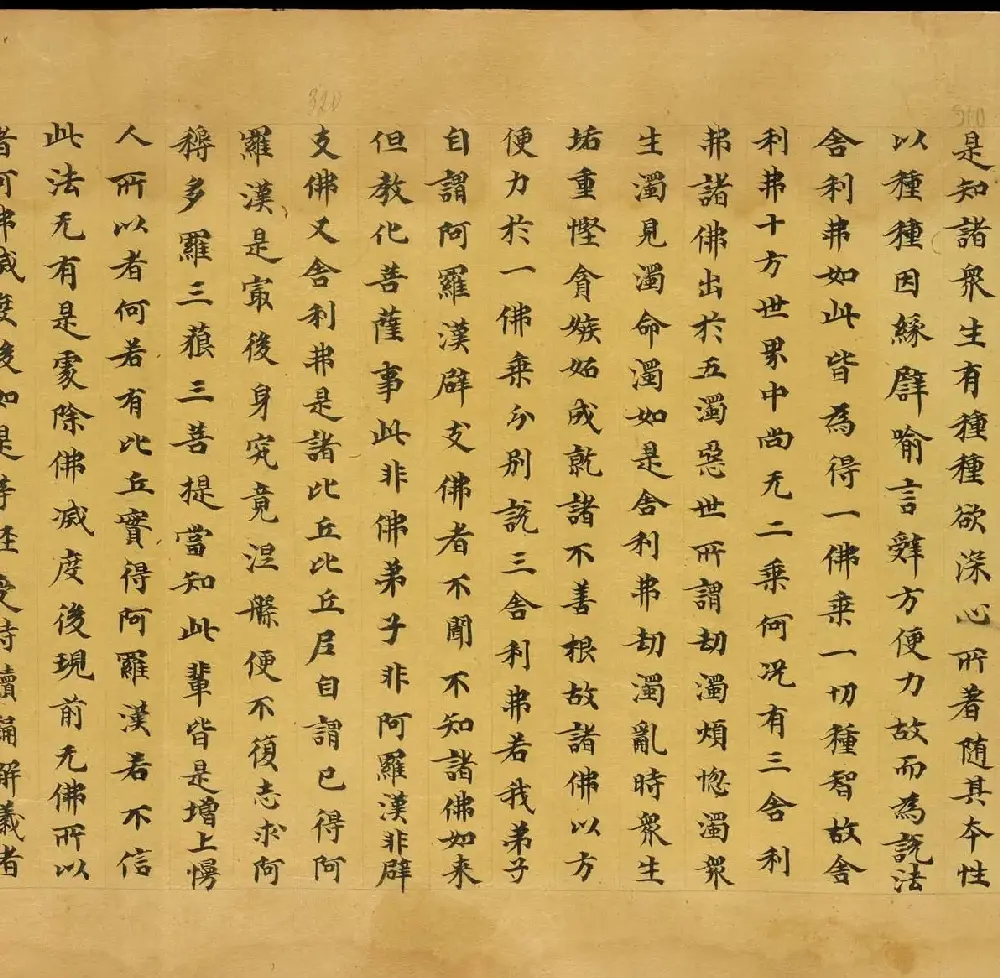 是知諸衆生有種種欲深心所著随其本性
以種種因緣譬喻言辭方便力故而為說法
舍利弗如此皆為得一佛乗一切種智故舍
利弗十方世界中尚无二乗何况有三舍利
弗諸佛出於五濁惡世所謂劫濁煩惚濁衆
生濁見濁命濁如是舍利弗劫濁亂時衆生
垢重慳貪嫉妬成就諸不善根故諸佛以方
便力於一佛乗分別說三舍利弗若我弟子
自謂阿羅漢辟支佛者不聞不知諸佛如来
但教化菩薩事此非佛弟子非阿羅漢非辟
支佛又舍利弗是諸比丘比丘尼自謂已得阿
羅漢是最後身究竟涅槃便不復志求阿
耨多羅三藐三菩提當知此輩皆是增上慢
人所以者何若有比丘實得阿羅漢若不信
此法无有是處除佛滅度後現前无佛所以
者何佛滅度後如是等経受持讀誦解義者
310
320